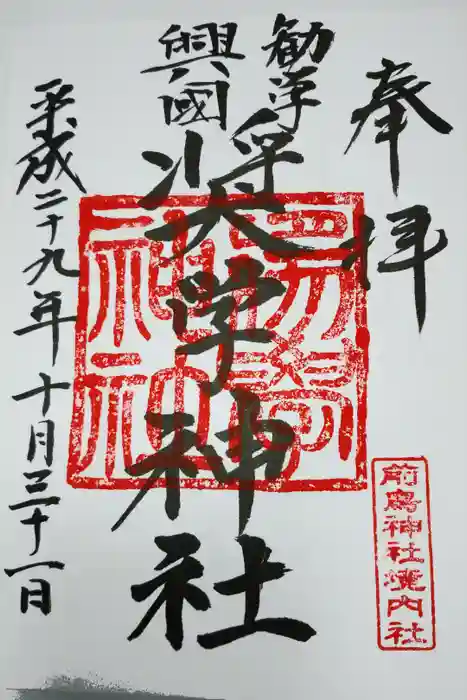 奉拝
勧学
興國
奨学神社
平成二十九年十月三十一日
前鳥神社境内社